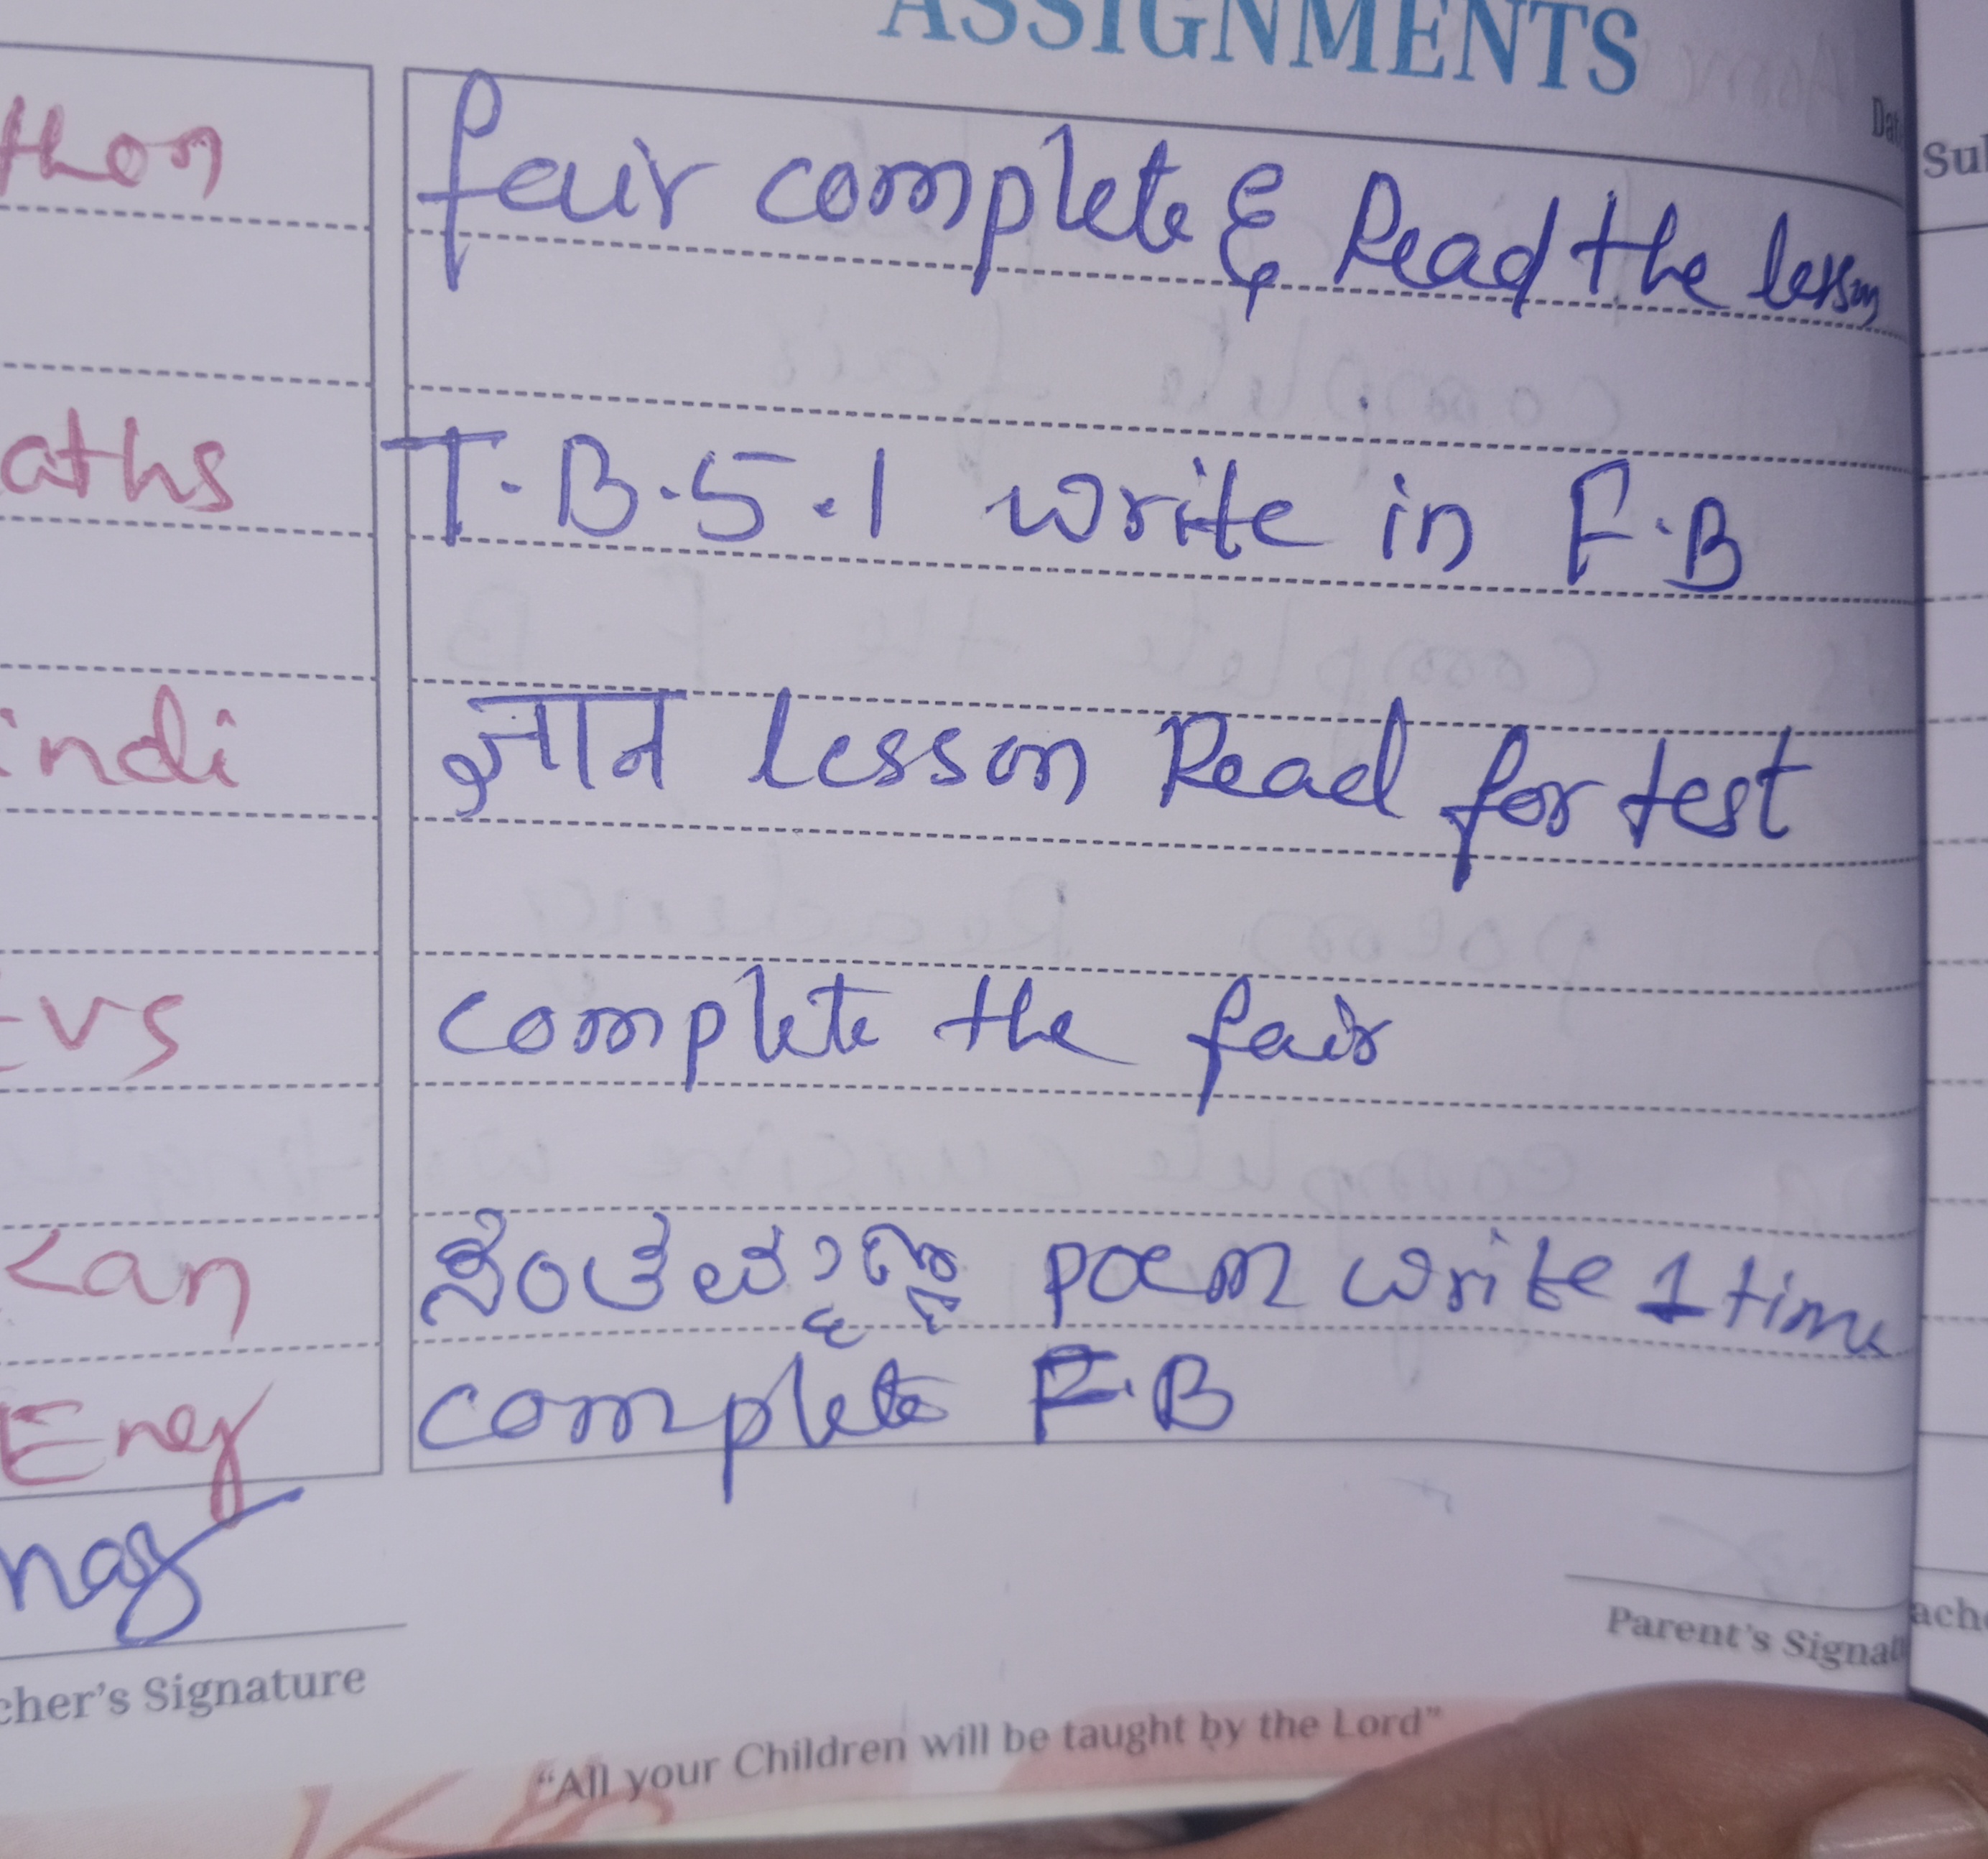 ASSIGNMENTS
Dat
Sul
thon fair complete & Read the lesson
aths T.B.5.1 write in F.B
indi ज्ञान lesson Read for test
EVS complete the fair
Kan poem write 1 time
Eng complete F.B
cher's Signature
Parent's Signat
ache
"All your Children will be taught by the Lord"